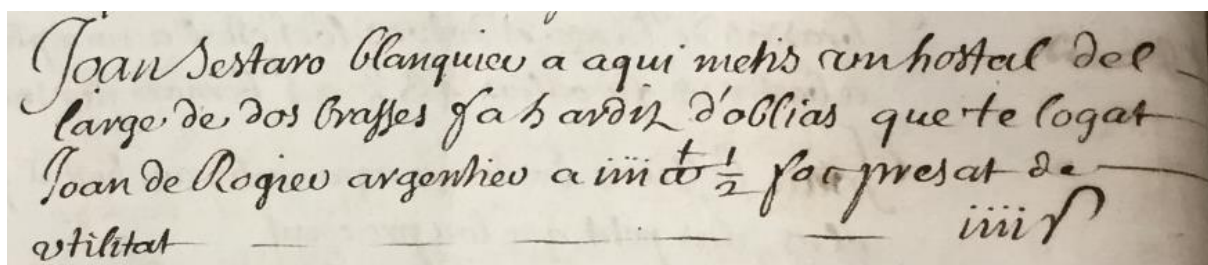 Joan Sestaro blanquieu a aqui metis un hostal del
large de dos brasses fa h ardit d'oblias que te logat
Joan de Rogieu argentieu a iiii ₶ ½ foc presat de
utilitat iiii s